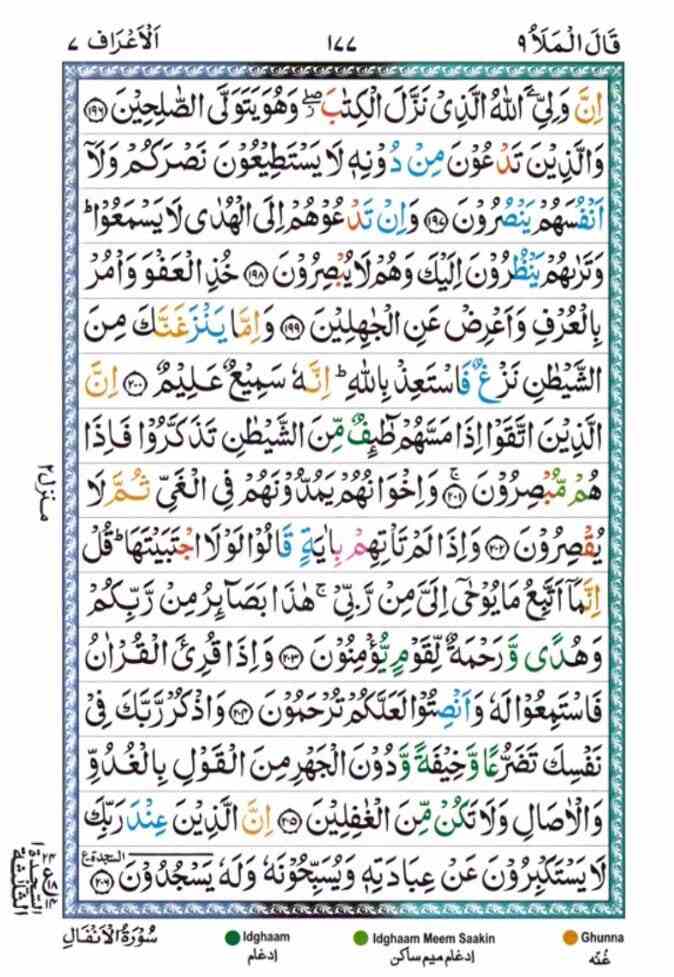 قَالَ الْمَلَاُ ۹
۱۷۷
اَلْاَعْرَاف ۷
اِنَّ وَلِيَِّۧ اللّٰهُ الَّذِىْ نَزَّلَ الْكِتٰبَ ۖ وَهُوَ يَتَوَلَّى الصّٰلِحِيْنَ ۝۱۹۶
وَالَّذِيْنَ تَدْعُوْنَ مِنْ دُوْنِهٖ لَا يَسْتَطِيْعُوْنَ نَصْرَكُمْ وَلَاۤ
اَنْفُسَهُمْ يَنْصُرُوْنَ ۝۱۹۷ وَاِنْ تَدْعُوْهُمْ اِلَى الْهُدٰى لَا يَسْمَعُوْا ؕ
وَتَرٰىهُمْ يَنْظُرُوْنَ اِلَيْكَ وَهُمْ لَا يُبْصِرُوْنَ ۝۱۹۸ خُذِ الْعَفْوَ وَاْمُرْ
بِالْعُرْفِ وَاَعْرِضْ عَنِ الْجٰهِلِيْنَ ۝۱۹۹ وَاِمَّا يَنْزَغَنَّكَ مِنَ
الشَّيْطٰنِ نَزْغٌ فَاسْتَعِذْ بِاللّٰهِ ؕ اِنَّهٗ سَمِيْعٌ عَلِيْمٌ ۝۲۰۰ اِنَّ
الَّذِيْنَ اتَّقَوْا اِذَا مَسَّهُمْ طٰٓئِفٌ مِّنَ الشَّيْطٰنِ تَذَكَّرُوْا فَاِذَا
هُمْ مُّبْصِرُوْنَ ۚ ۝۲۰۱ وَاِخْوَانُهُمْ يَمُدُّوْنَهُمْ فِى الْغَىِّ ثُمَّ لَا
يُقْصِرُوْنَ ۝۲۰۲ وَاِذَا لَمْ تَاْتِهِمْ بِاٰيَةٍ قَالُوْا لَوْلَا اجْتَبَيْتَهَا ؕ قُلْ
اِنَّمَاۤ اَتَّبِعُ مَا يُوْحٰۤى اِلَىَّ مِنْ رَّبِّىْ ۚ هٰذَا بَصَآئِرُ مِنْ رَّبِّكُمْ
وَهُدًى وَّرَحْمَةٌ لِّقَوْمٍ يُّؤْمِنُوْنَ ۝۲۰۳ وَاِذَا قُرِئَ الْقُرْاٰنُ
فَاسْتَمِعُوْا لَهٗ وَاَنْصِتُوْا لَعَلَّكُمْ تُرْحَمُوْنَ ۝۲۰۴ وَاذْكُرْ رَّبَّكَ فِىْ
نَفْسِكَ تَضَرُّعًا وَّخِيْفَةً وَّدُوْنَ الْجَهْرِ مِنَ الْقَوْلِ بِالْغُدُوِّ
وَالْاٰصَالِ وَلَا تَكُنْ مِّنَ الْغٰفِلِيْنَ ۝۲۰۵ اِنَّ الَّذِيْنَ عِنْدَ رَبِّكَ
لَا يَسْتَكْبِرُوْنَ عَنْ عِبَادَتِهٖ وَيُسَبِّحُوْنَهٗ وَلَهٗ يَسْجُدُوْنَ ۝۲۰۶ السجدة
منزل ۲
سُوْرَةُ الْاَنْفَالِ
Idghaam
ادغام
Idghaam Meem Saakin
ادغام میم ساکن
Ghunna
غُنّه